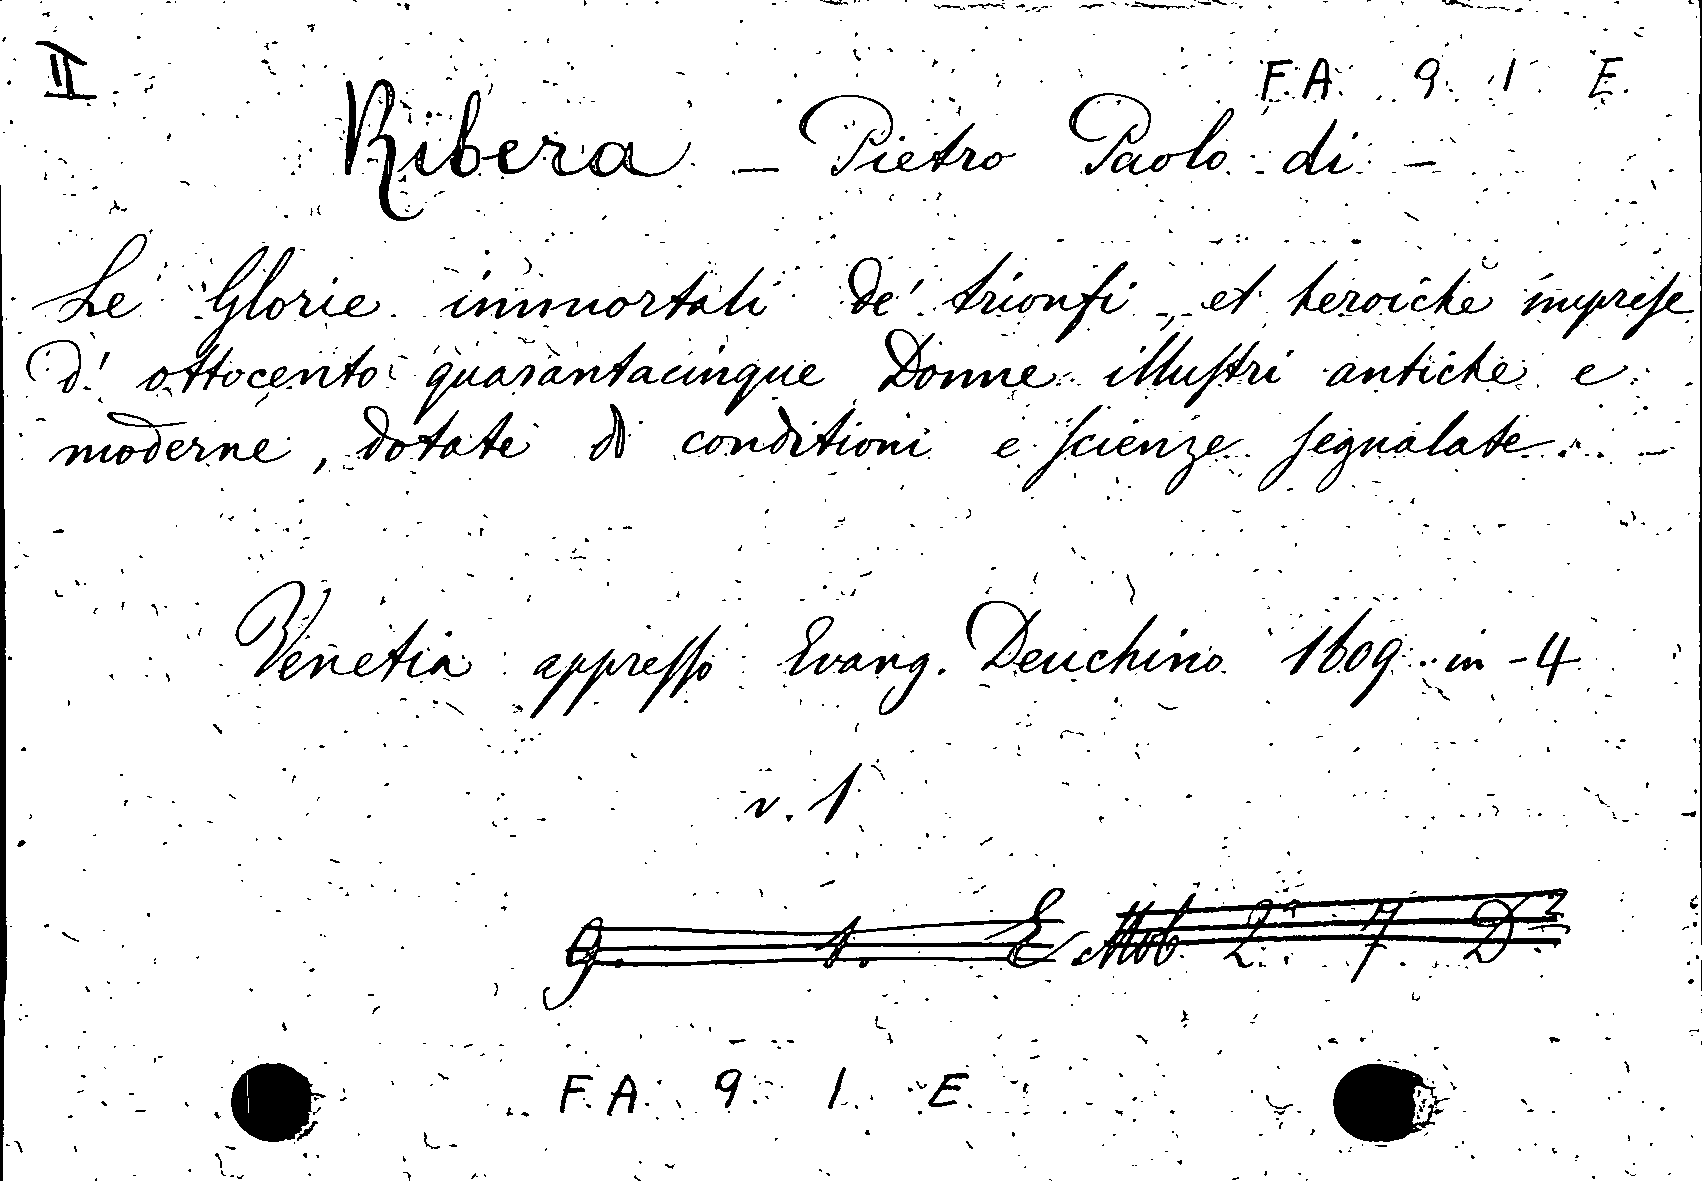 II
F. A. 9. 1. E.
Ribera - Pietro Paolo di -
Le Glorie immortali de' trionfi, et heroiche imprese
d' ottocento quarantacinque Donne illustri antiche e
moderne, dotate di conditioni e scienze segnalate. -
Venetia appresso Evang. Deuchino 1609 in-4
v. 1
g. 1. E Mob. 2ª 7. D²
F. A. 9. 1. E.